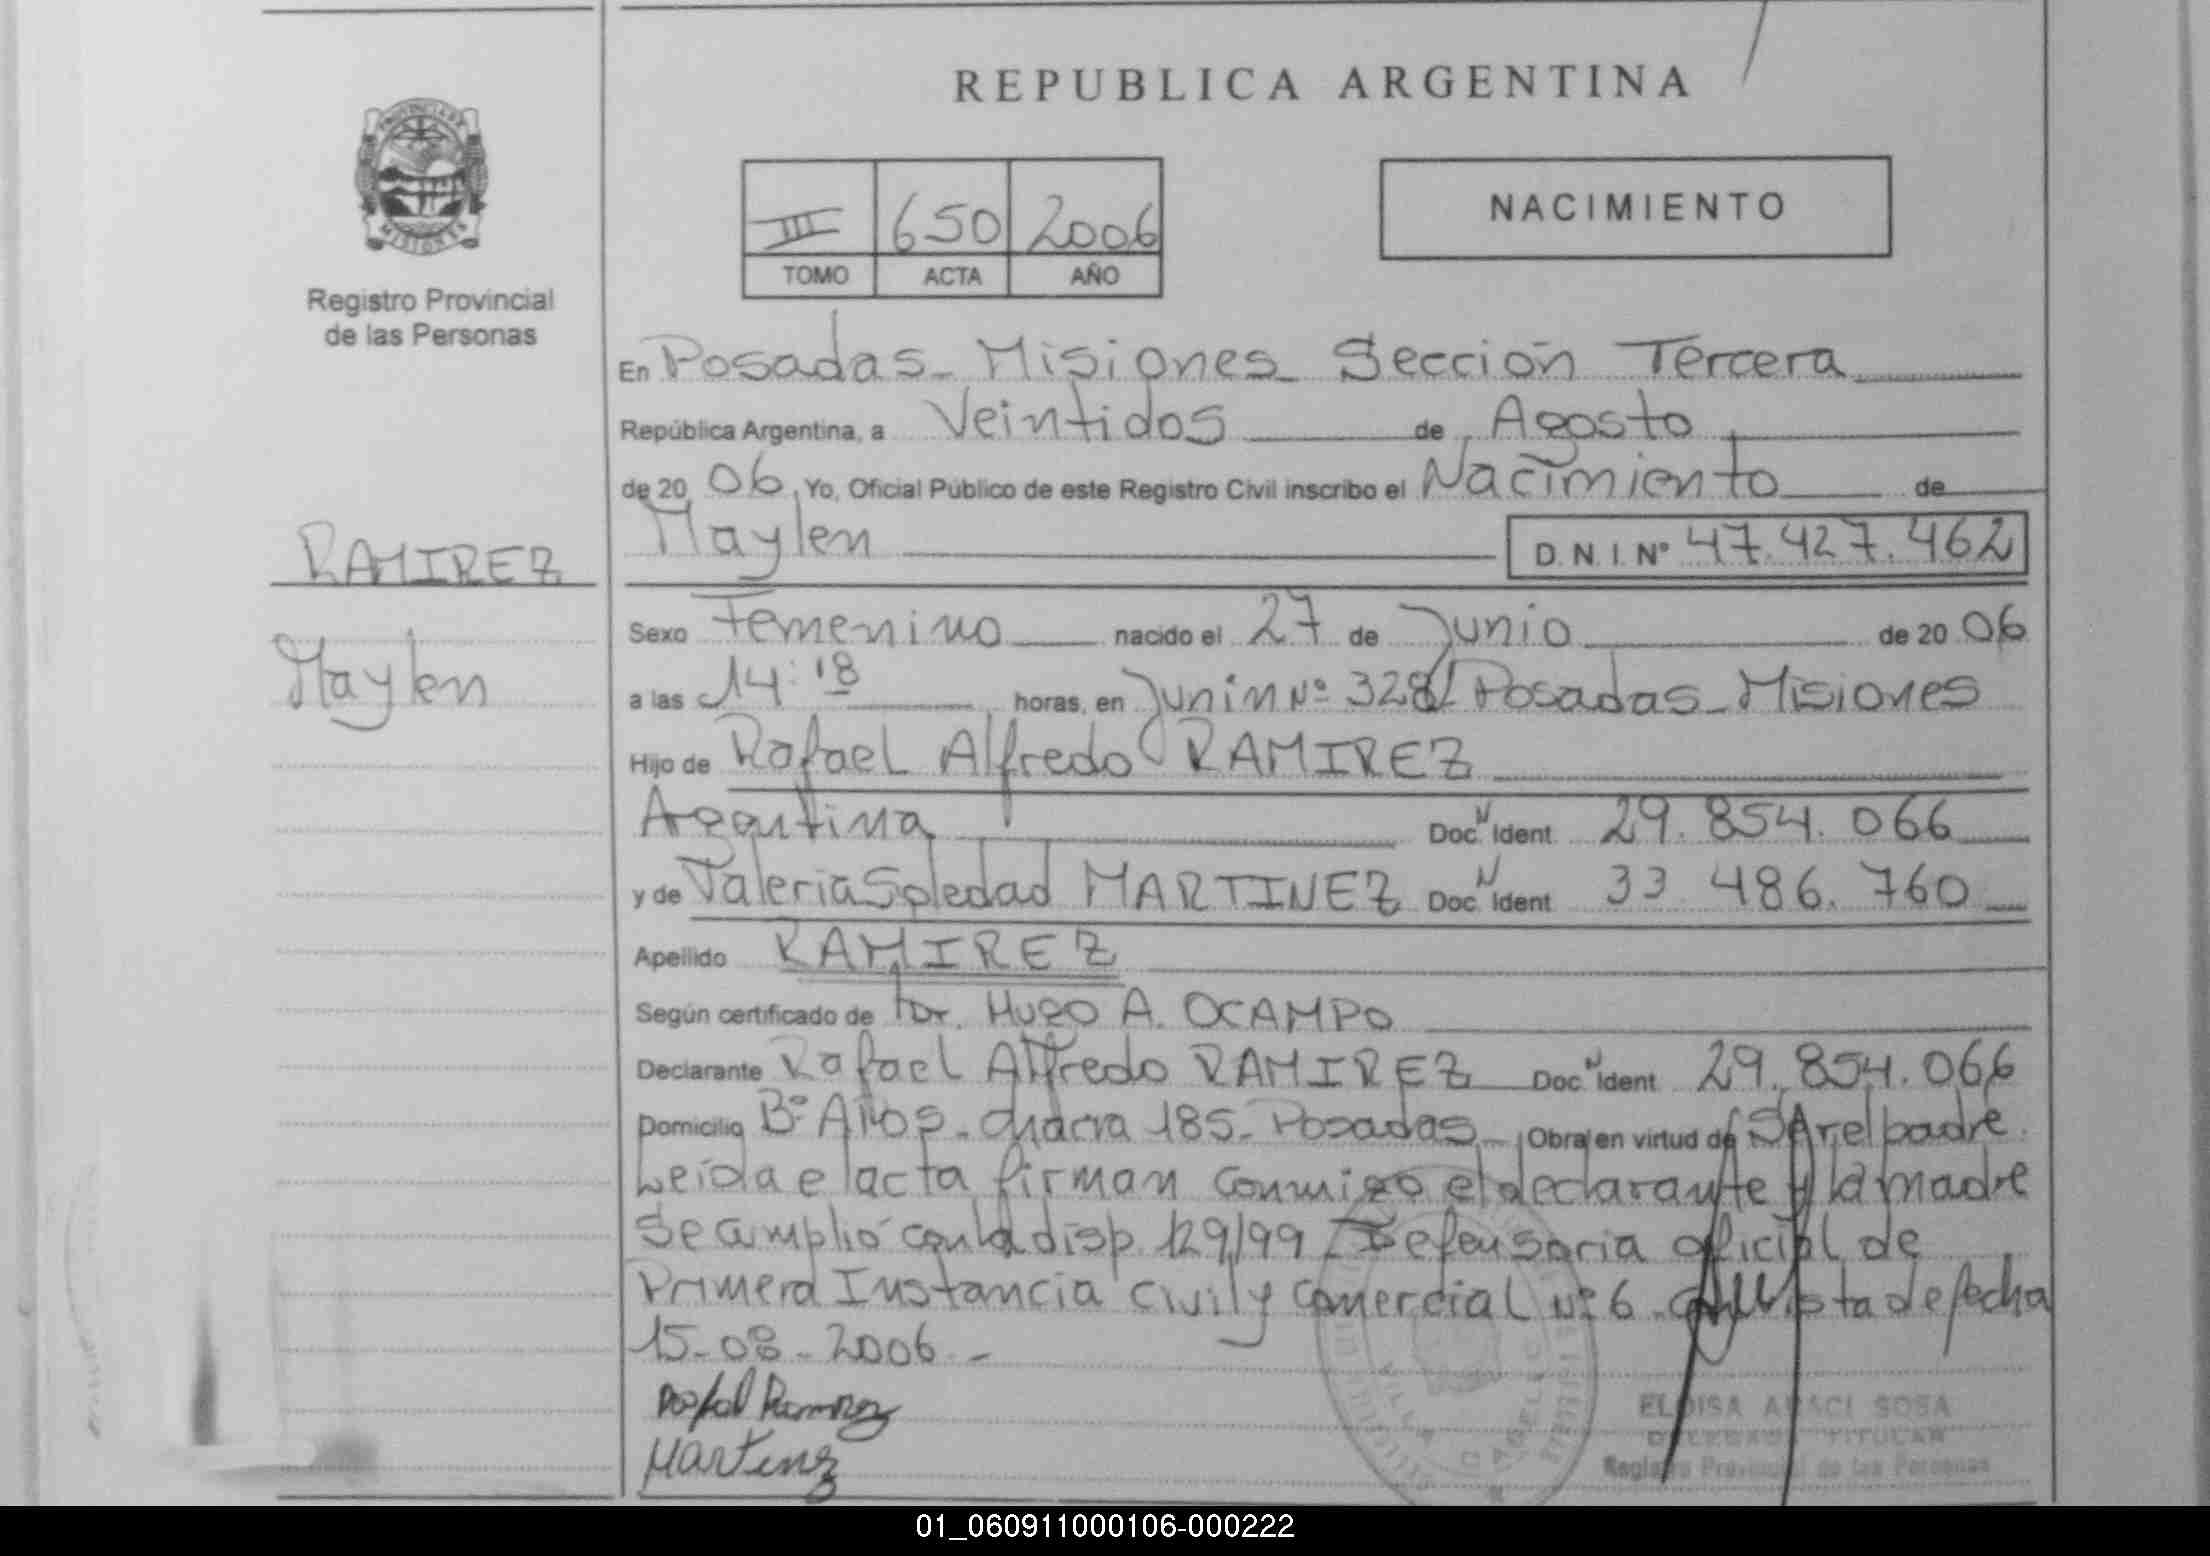 REPUBLICA ARGENTINA
PROVINCIA DE
MISIONES
Registro Provincial
de las Personas
III 650 2006
TOMO ACTA AÑO
NACIMIENTO
En Posadas - Misiones - Sección Tercera
República Argentina, a Veintidos de Agosto
de 20 06 Yo, Oficial Público de este Registro Civil inscribo el Nacimiento de
Maylen D. N. I. Nº 47.427.462
RAMIREZ
Maylen
Sexo Femenino nacido el 27 de Junio de 20 06
a las 14:18 horas, en Junin Nº 328/ Posadas - Misiones
Hijo de Rafael Alfredo RAMIREZ
Argentina Doc. N Ident 29.854.066
y de Valeria Soledad MARTINEZ Doc. N Ident 33 486.760
Apellido RAMIREZ
Según certificado de Dr. Hugo A. OCAMPO
Declarante Rafael Alfredo RAMIREZ Doc. N Ident 29.854.066
Domicilio Bº chacra 185 - Posadas - Obra en virtud de ser el padre.
Leida el acta firman conmigo el declarante y la madre
Se cumplió con la disp. 129/99 Defensoria oficial de
Primera Instancia civil y comercial Nº 6 - vista de fecha
15-08-2006 -
Rafael Ramirez
Martinez
ELOISA ARACI SOSA
DELEGADO TITULAR
Registro Provincial de las Personas
01_060911000106-000222